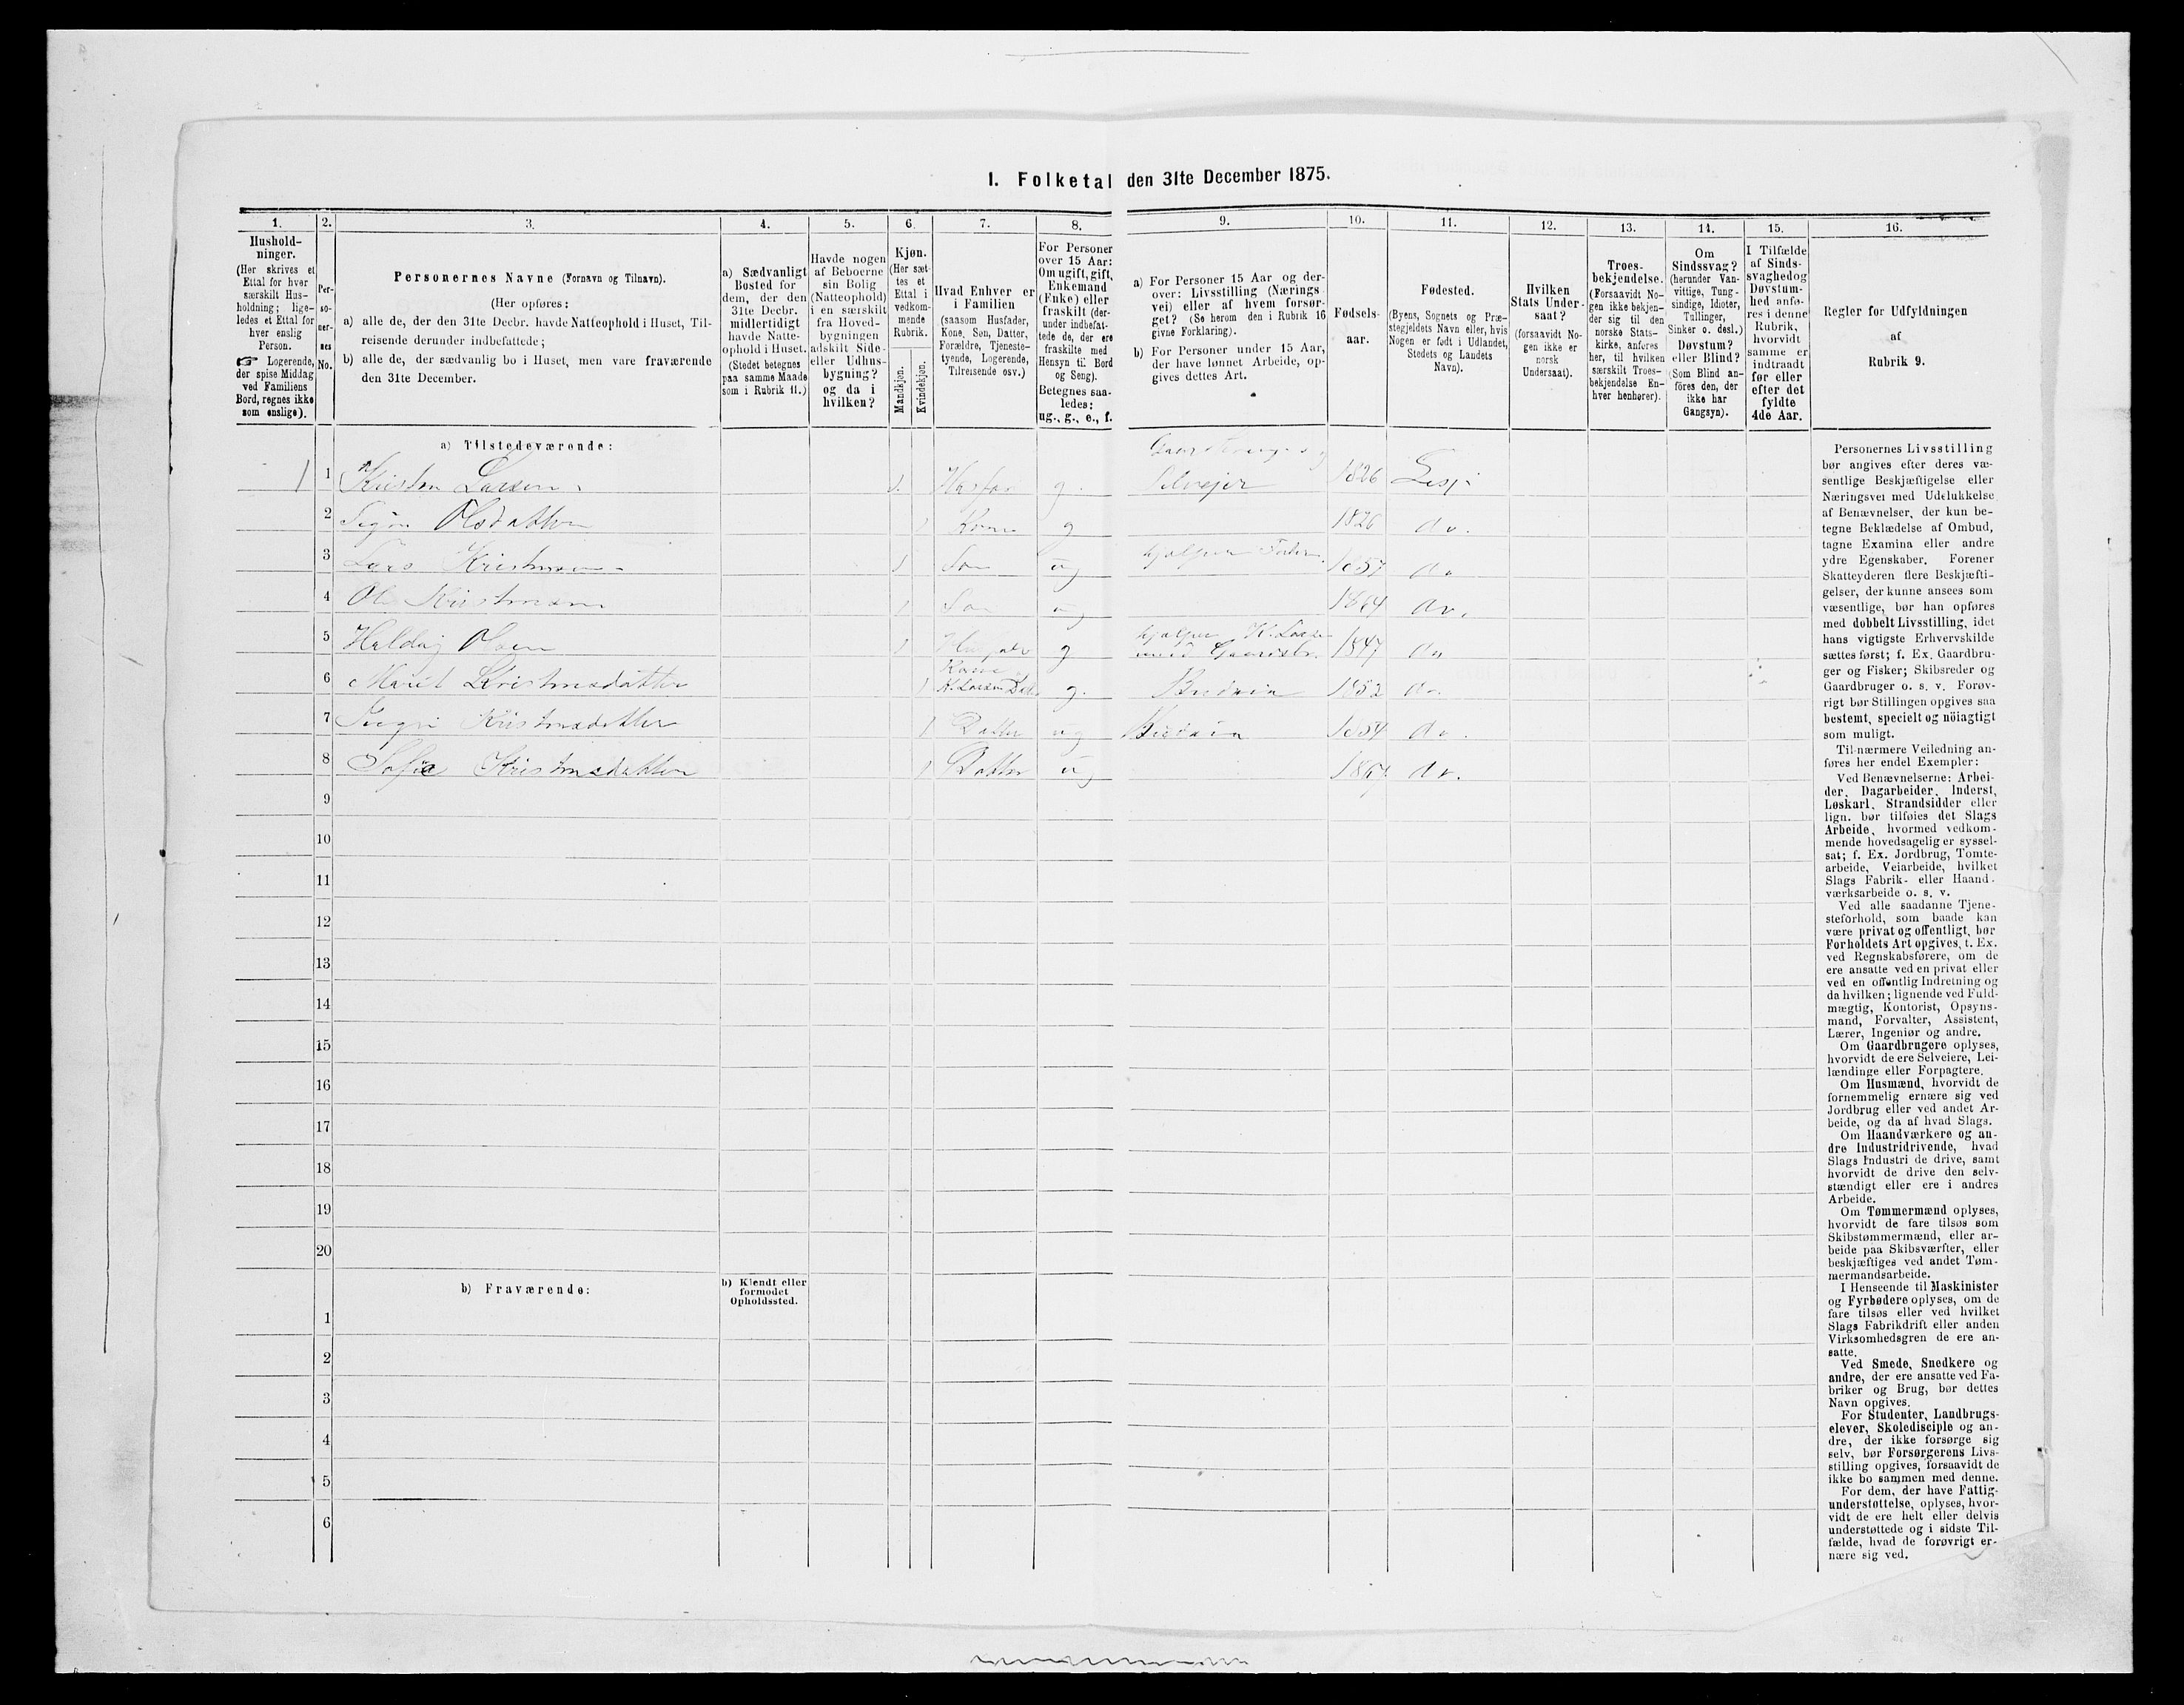 I. Folketal den 31te December 1875.
1. 2. 3. 4. 5. 6. 7. 8. 9. 10. 11. 12. 13. 14. 15. 16.
Hushold-
ninger.
(Her skrives et
Ettal for hver
særskilt Hus-
holdning; lige-
ledes et Ettal for
hver enslig
Person.
☞ Logerende,
der spise Middag
ved Familiens
Bord, regnes ikke
som enslige).
Per-
so-
ner-
nes
No.
Personernes Navne (Fornavn og Tilnavn).
(Her opføres:
a) alle de, der den 31te Decbr. havde Natteophold i Huset, Til-
reisende derunder indbefattede;
b) alle de, der sædvanlig bo i Huset, men vare fraværende
den 31te December.
a) Sædvanligt
Bosted for
dem, der den
31te Decbr.
midlertidigt
havde Natte-
ophold i Huset.
(Stedet betegnes
paa samme Maade
som i Rubrik 11.)
Havde nogen
af Beboerne
sin Bolig
(Natteophold)
i en særskilt
fra Hoved-
bygningen
adskilt Side-
eller Udhus-
bygning?
og da i
hvilken?
Kjøn.
(Her sæt-
tes et
Ettal i
vedkom-
mende
Rubrik.
Mandkjøn.
Kvindekjøn.
Hvad Enhver er
i Familien
(saasom Husfader,
Kone, Søn, Datter,
Forældre, Tjeneste-
tyende, Logerende,
Tilreisende osv.)
For Personer
over 15 Aar:
Om ugift, gift,
Enkemand
(Enke) eller
fraskilt (der-
under indbefat-
tede de, der ere
fraskilte med
Hensyn til Bord
og Seng).
Betegnes saa-
ledes:
ug., g., e., f.
a) For Personer 15 Aar og der-
over: Livsstilling (Nærings-
vei) eller af hvem forsør-
get? (Se herom den i Rubrik 16
givne Forklaring).
b) For Personer under 15 Aar,
der have lønnet Arbeide, op-
gives dettes Art.
Fødsels-
aar.
Fødested.
(Byens, Sognets og Præ-
stegjeldets Navn eller, hvis
Nogen er født i Udlandet,
Stedets og Landets
Navn).
Hvilken
Stats Under-
saat?
(forsaavidt No-
gen ikke er
norsk
Undersaat).
Troes-
bekjendelse.
(Forsaavidt No-
gen ikke bekjen-
der sig til den
norske Stats-
kirke, anføres
her, til hvilken
særskilt Troes-
bekjendelse En-
hver henhører).
Om
Sindssvag?
(herunder Van-
vittige, Tung-
sindige, Idioter,
Tullinger,
Sinker o. desl.)
Døvstum?
eller Blind?
(Som Blind an-
føres den, der
ikke har
Gangsyn).
I Tilfælde
af Sinds-
svaghed og
Døvstum-
hed anfø-
res i denne
Rubrik,
hvorvidt
samme er
indtraadt
før eller
efter det
fyldte
4de Aar.
Regler for Udfyldningen
af
Rubrik 9.
a) Tilstedeværende:
1 1 Kristen Larsen 1. Husfar g. Selvejer 1826 Lesje
2 Olsdatter 1 Kone g 1826 do.
3 Lars Kristensen 1 Søn ug hjælper Faderen 1857 do
4 Ole Kristensen 1 Søn ug 1864 do.
5 Haldag Olsen 1 g hjælper K. Larsen
med Gaardsbr. 1847 do
6 Marit Kristensdatter 1 Kone
K. Larsen Datter g. Budeia 1852 do.
7 Ingri Kristensdatter 1 Datter ug Budeia 1854 do.
8 Sofie Kristensdatter 1 Datter ug do.
9
10
11
12
13
14
15
16
17
18
19
20
b) Fraværende:
b) Kjendt eller
formodet
Opholdssted.
1
2
3
4
5
6
Personernes Livsstilling
bør angives efter deres væ-
sentlige Beskjæftigelse eller
Næringsvei med Udelukkelse
af Benævnelser, der kun be-
tegne Beklædelse af Ombud,
tagne Examina eller andre
ydre Egenskaber. Forener
Skatteyderen flere Beskjæfti-
gelser, der kunne ansees som
væsentlige, bør han opføres
med dobbelt Livsstilling, idet
hans vigtigste Erhvervskilde
sættes først; f. Ex. Gaardbru-
ger og Fisker; Skibsreder og
Gaardbruger o. s. v. Forøv-
rigt bør Stillingen opgives saa
bestemt, specielt og nöiagtigt
som muligt.
Til nærmere Veiledning an-
føres her endel Exempler:
Ved Benævnelserne: Arbei-
der, Dagarbeider, Inderst,
Løskarl, Strandsidder eller
lign. bør tilføies det Slags
Arbeide, hvormed vedkom-
mende hovedsagelig er syssel-
sat; f. Ex. Jordbrug, Tomte-
arbeide, Veiarbeide, hvilket
Slags Fabrik- eller Haand-
værksarbeide o. s. v.
Ved alle saadanne Tjene-
steforhold, som baade kan
være privat og offentligt, bør
Forholdets Art opgives, t. Ex.
ved Regnskabsførere, om de
ere ansatte ved en privat eller
ved en offentlig Indretning og
da hvilken; lignende ved Fuld-
mægtig, Kontorist, Opsyns-
mand, Forvalter, Assistent,
Lærer, Ingeniør og andre.
Om Gaardbrugere oplyses,
hvorvidt de ere Selveiere, Lei-
lændinge eller Forpagtere.
Om Husmænd, hvorvidt de
fornemmelig ernære sig ved
Jordbrug eller ved andet Ar-
beide, og da af hvad Slags.
Om Haandværkere og an-
dre Industridrivende, hvad
Slags Industri de drive, samt
hvorvidt de drive den selv-
stændigt eller ere i andres
Arbeide.
Om Tømmermænd oplyses,
hvorvidt de fare tilsøs som
Skibstømmermænd, eller ar-
beide paa Skibsværfter, eller
beskjæftiges ved andet Tøm-
mermandsarbeide.
I Henseende til Maskinister
og Fyrbødere oplyses, om de
fare tilsøs eller ved hvilket
Slags Fabrikdrift eller anden
Virksomhedsgren de ere an-
satte.
Ved Smede, Snedkere og
andre, der ere ansatte ved Fa-
briker og Brug, bør dettes
Navn opgives.
For Studenter, Landbrugs-
elever, Skoledisciple og an-
dre, der ikke forsørge sig
selv, bør Forsørgerens Livs-
stilling opgives, forsaavidt de
ikke bo sammen med denne.
For dem, der have Fattig-
understøttelse, oplyses, hvor-
vidt de ere helt eller delvis
understøttede og i sidste Til-
fælde, hvad de forøvrigt er-
nære sig ved.